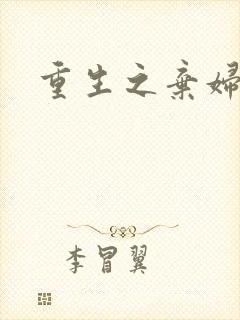 重生之棄婦
李冒翼